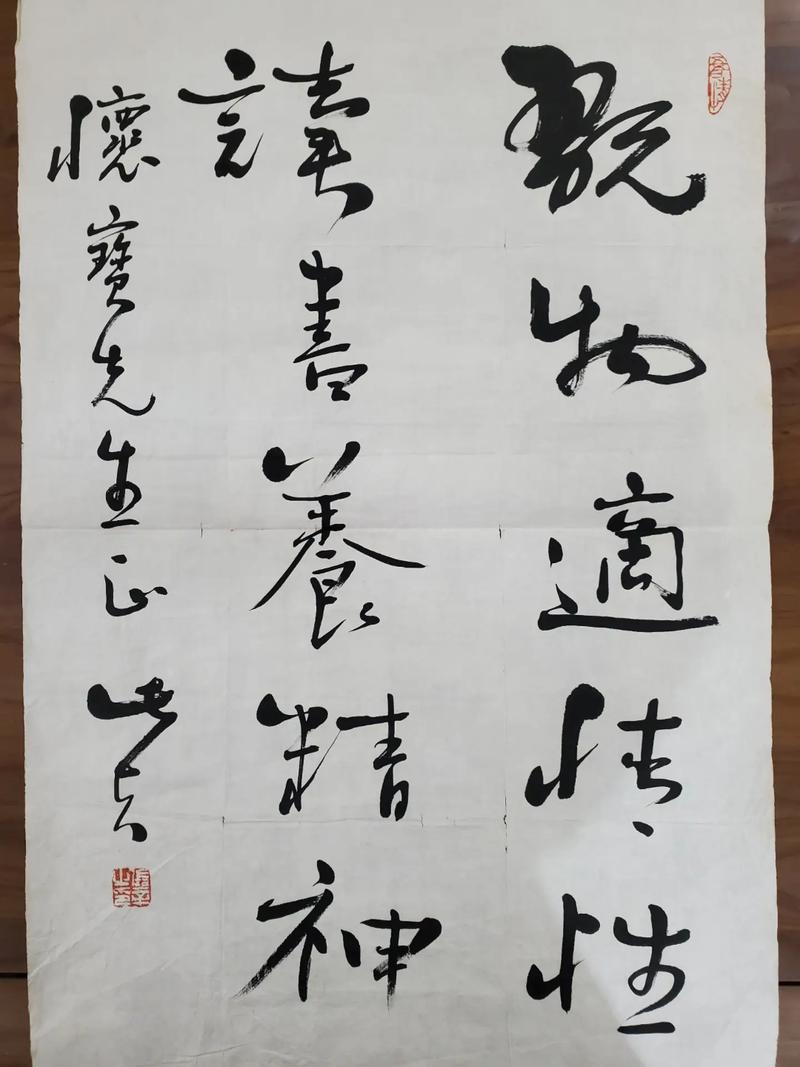 翫物適情性
讀書養精神
懷寶先生正